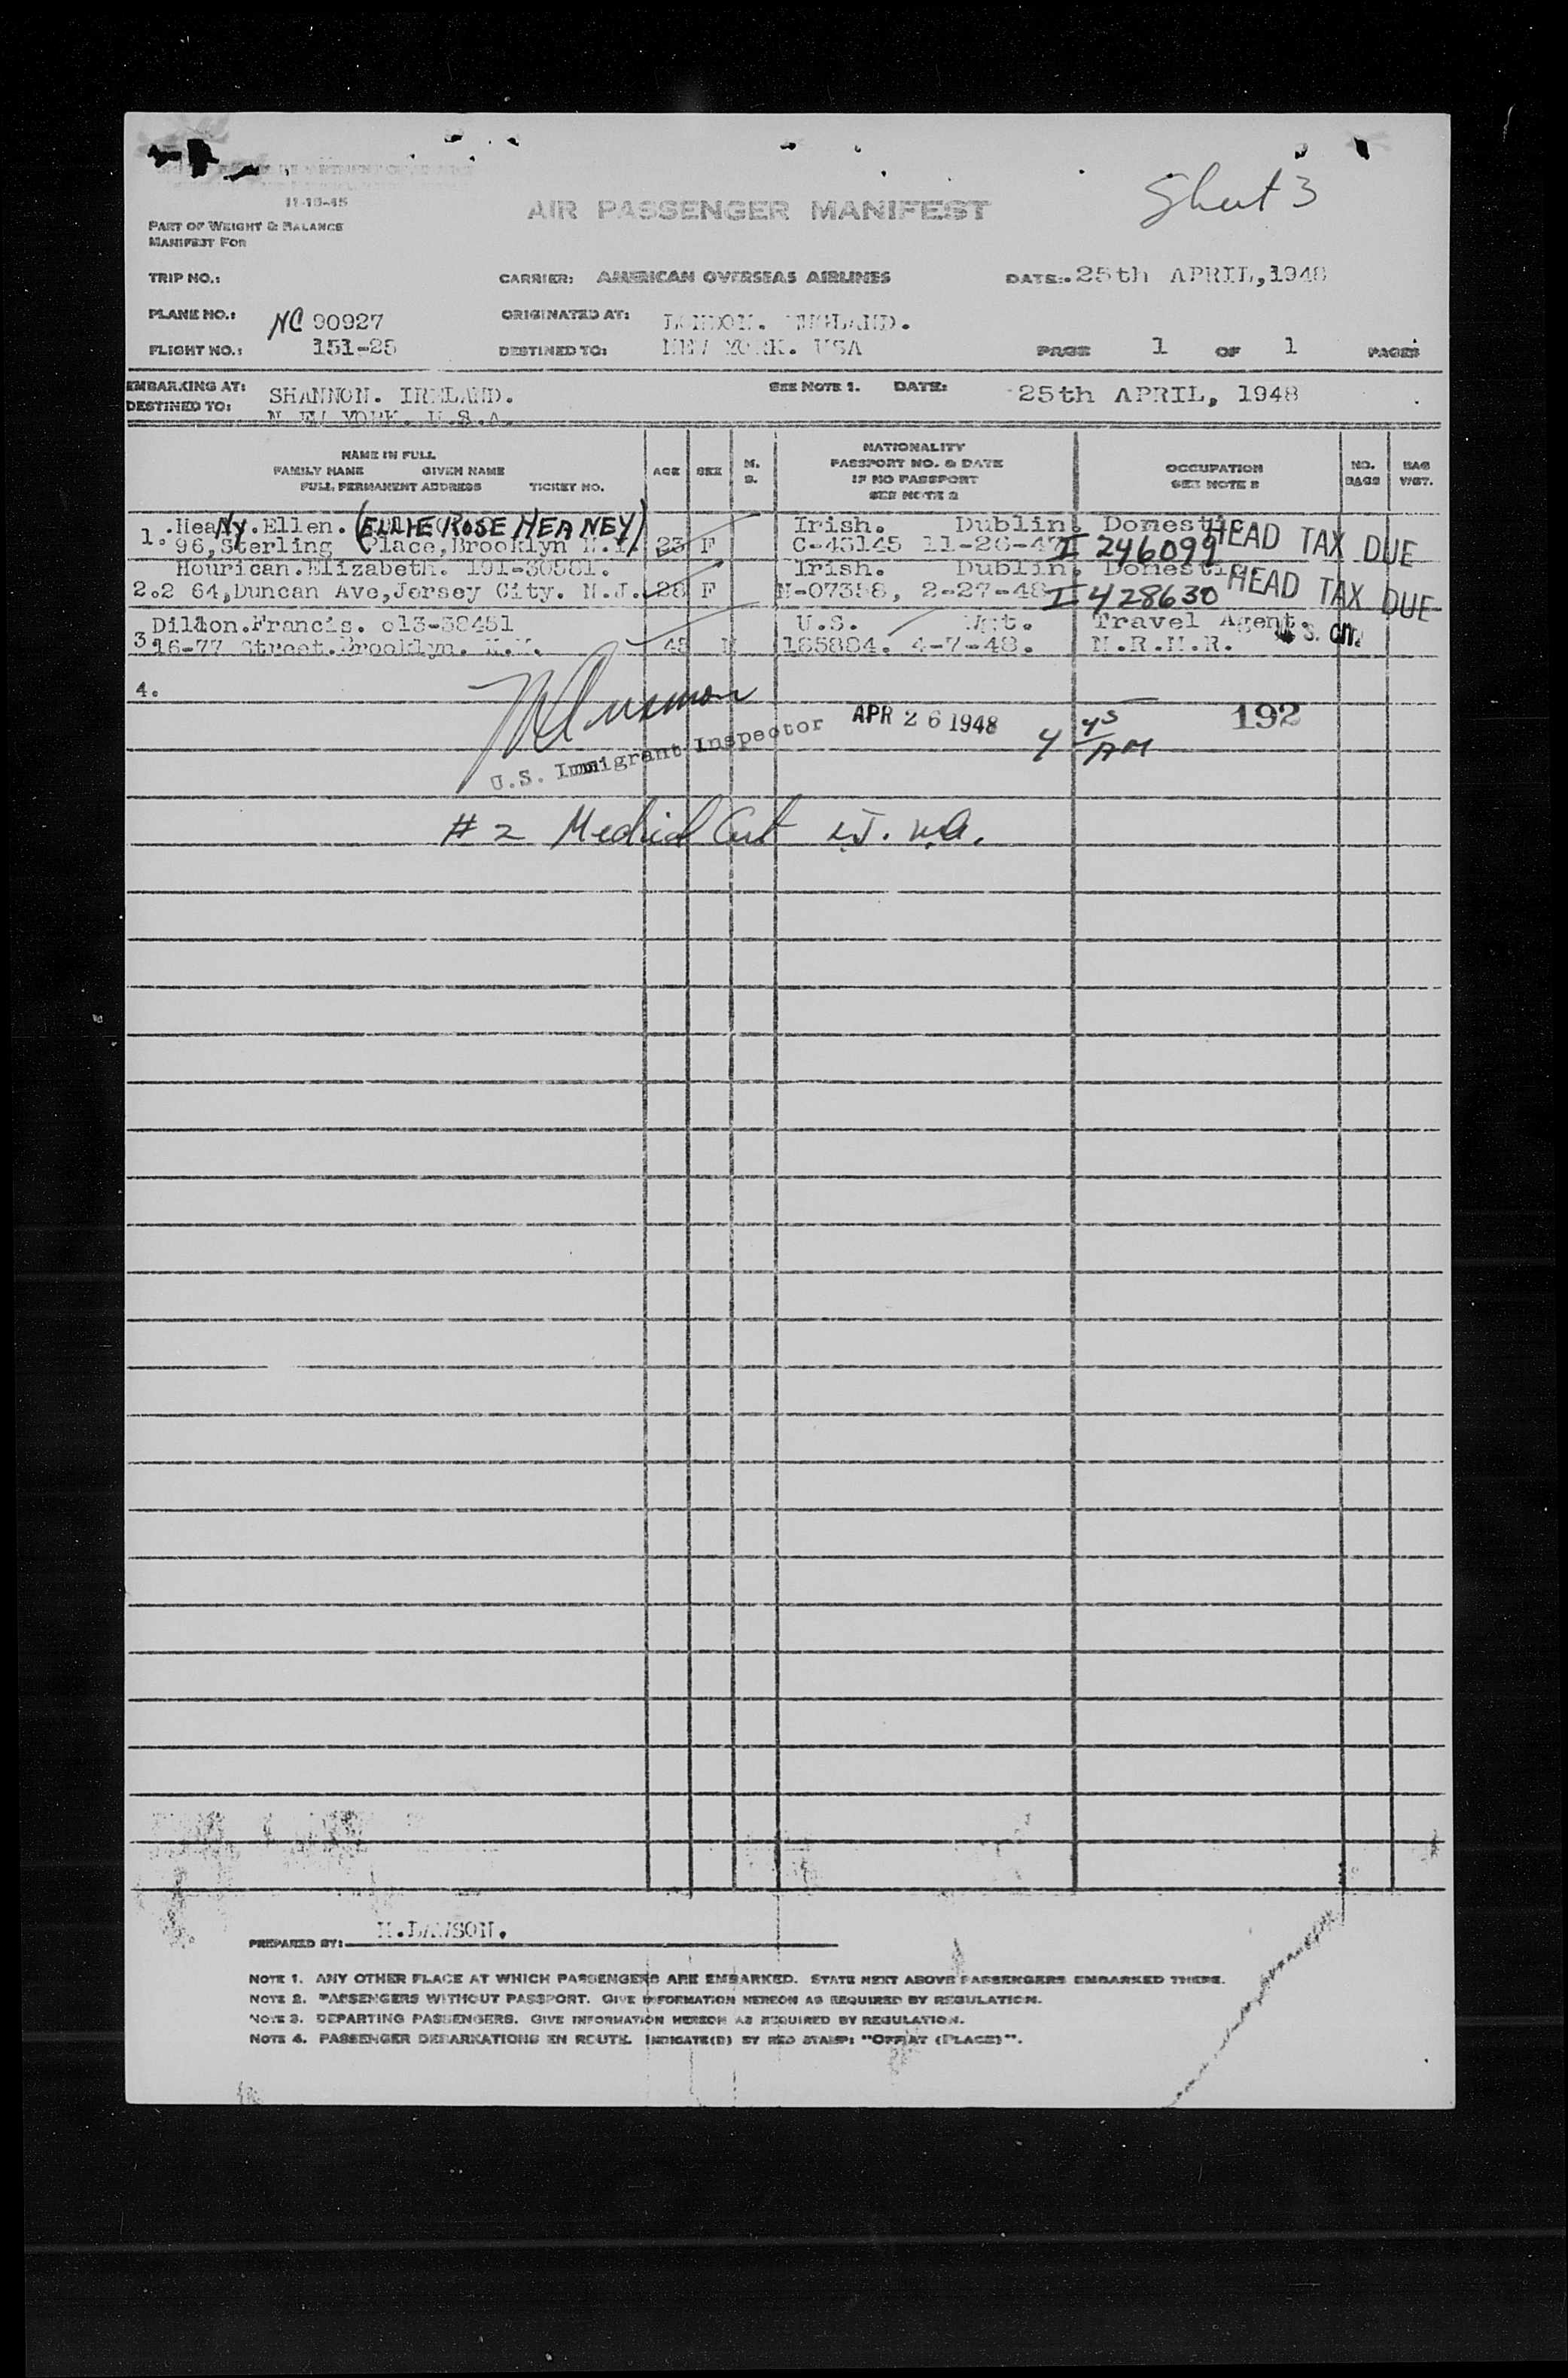 11-10-45
AIR PASSENGER MANIFEST
Sheet 3
PART OF WEIGHT & BALANCE
MANIFEST FOR
TRIP NO.:
CARRIER: AMERICAN OVERSEAS AIRLINES
DATE: 25th APRIL, 1948
PLANE NO.: NC 90927
ORIGINATED AT: LONDON. ENGLAND.
FLIGHT NO.: 151-25
DESTINED TO: NEW YORK. USA
PAGE 1 OF 1 PAGES
EMBARKING AT: SHANNON. IRELAND.
SEE NOTE 1. DATE: 25th APRIL, 1948
DESTINED TO: N EW YORK. U.S.A.
NAME IN FULL
FAMILY NAME GIVEN NAME
FULL PERMANENT ADDRESS TICKET NO.
AGE
SEX
M.
S.
NATIONALITY
PASSPORT NO. & DATE
IF NO PASSPORT
SEE NOTE 2
OCCUPATION
SEE NOTE 3
NO.
BAGS
BAG
WGT.
1. Heany. Ellen. (ELLIE ROSE HEANEY) Irish. Dublin. Domestic HEAD TAX DUE
96, Sterling Place, Brooklyn N.Y. 23 F C-43145 11-26-47 I 246099
Hourican. Elizabeth. 191-30581. Irish. Dublin. Domestic HEAD TAX DUE
2. 2 64, Duncan Ave, Jersey City. N.J. 28 F N-07358, 2-27-48 I 428630
Dillon. Francis. 013-38451 U.S. Travel Agent.
3 16-77 Street. Brooklyn. N.Y. 45 M 185884. 4-7-48. N.R.N.R.
4.
U.S. Immigrant Inspector
APR 26 1948
4 45 AM
192
# 2 Medical Cert
PREPARED BY: LAWSON.
NOTE 1. ANY OTHER PLACE AT WHICH PASSENGERS ARE EMBARKED. STATE NEXT ABOVE PASSENGERS EMBARKED THERE.
NOTE 2. PASSENGERS WITHOUT PASSPORT. GIVE INFORMATION HEREON AS REQUIRED BY REGULATION.
NOTE 3. DEPARTING PASSENGERS. GIVE INFORMATION HEREON AS REQUIRED BY REGULATION.
NOTE 4. PASSENGER DEBARKATIONS EN ROUTE. INDICATE(D) BY RED STAMP: "OFF AT (PLACE)".